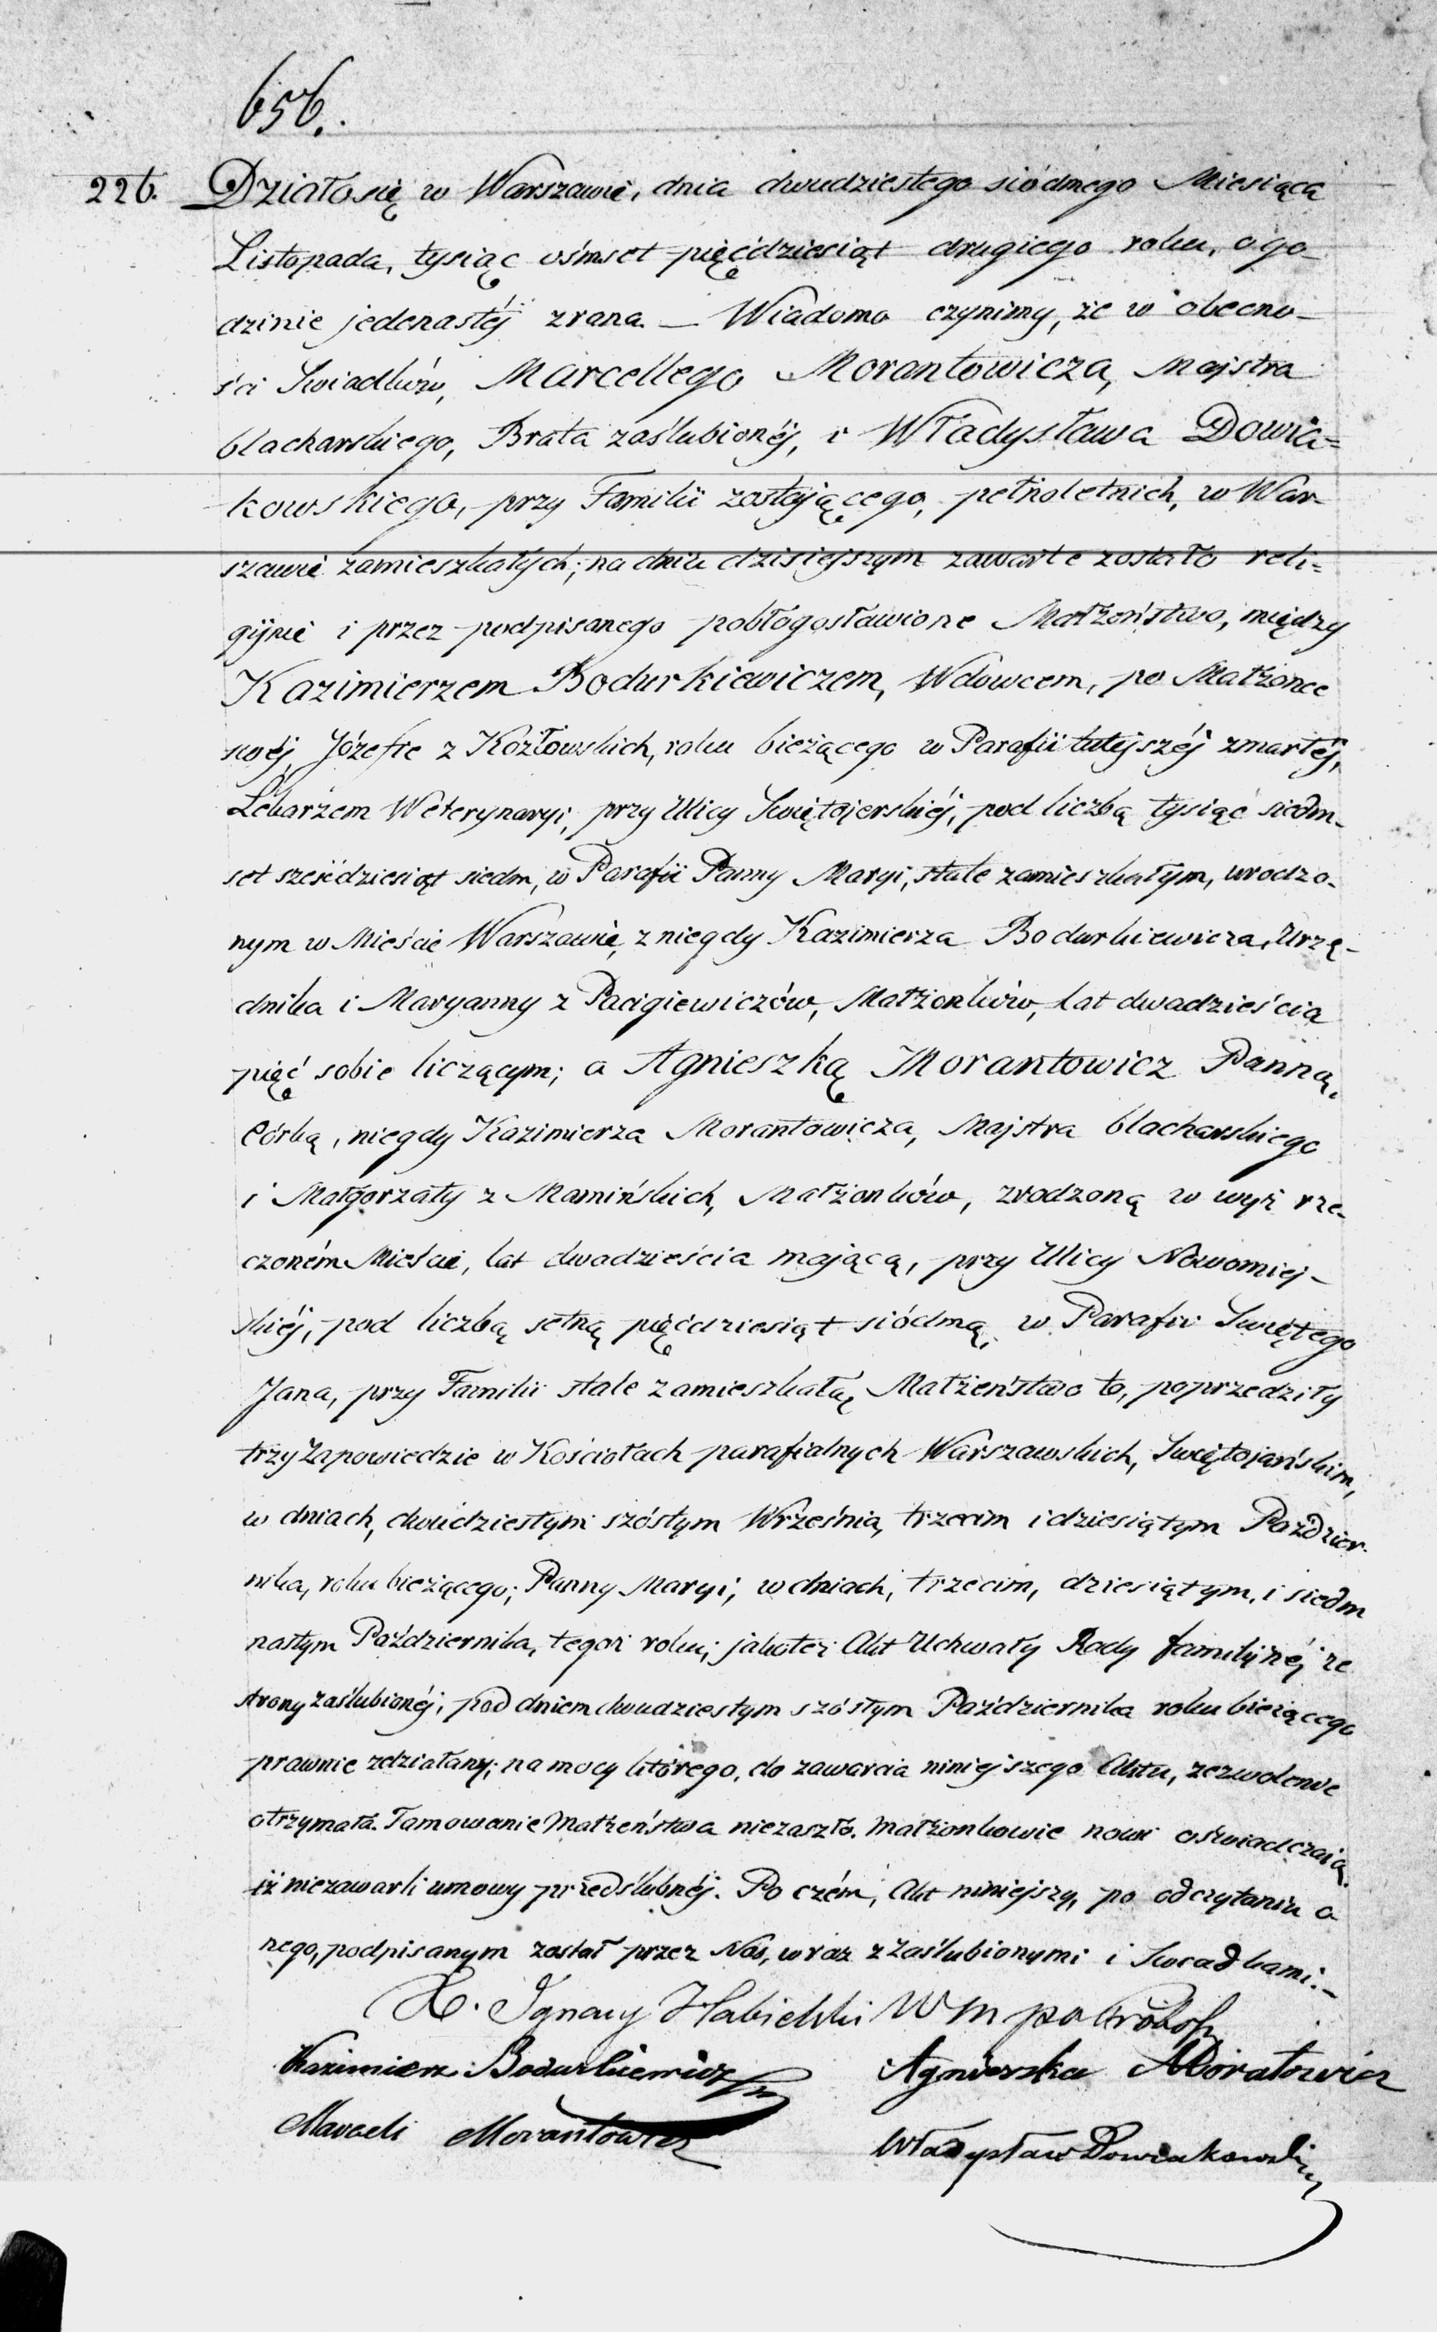 656.
226. Działo się w Warszawie, dnia dwudziestego siódmego Miesiąca
Listopada, tysiąc ośmset pięćdziesiąt drugiego roku, o go-
dzinie jedenastéj zrana. — Wiadomo czynimy, że w obecno-
ści Swiadków, Marcellego Morantowicza, Majstra
blacharskiego, Brata zaślubionéj, i Władysława Dowia=
kowskiego, przy Familii zostającego, pełnoletnich, w War-
szawie zamieszkałych; na dniu dzisiejszym zawarte zostało reli=
gijnie i przez podpisanego pobłogosławione Małżeństwo, między
Kazimierzem Bodurkiewiczem, Wdowcem, po Małżonce
swéj Józefie z Kozłowskich, roku bieżącego w Parafii tutejszéj zmarłéj,
Lekarzem Weterynaryi, przy Ulicy Swiętojerskiéj, pod liczbą tysiąc siedm-
set sześćdziesiąt siedm, w Parafii Panny Maryi, stale zamieszkałym, urodzo-
nym w Mieście Warszawie, z niegdy Kazimierza Bodurkiewicza, Urzę-
dnika i Maryanny z Pacigiewiczów, Małżonków, lat dwadzieścia
pięć sobie liczącym; a Agnieszką Morantowicz Panną,
Córką, niegdy Kazimierza Morantowicza, Majstra blacharskiego
i Małgorzaty z Mamińskich, Małżonków, zrodzoną w wyż rze-
czoném Mieście, lat dwadzieścia mającą, przy Ulicy Nowomiej-
skiéj, pod liczbą setną pięćdziesiąt siódmą, w Parafii Swiętego
Jana, przy Familii stale zamieszkałą. Małżeństwo to, poprzedziły
trzy Zapowiedzie w Kościołach parafialnych Warszawskich, Swiętojańskim,
w dniach, dwudziestym szóstym Września, trzecim i dziesiątym Paździer-
nika, roku bieżącego; Panny Maryi, w dniach, trzecim, dziesiątym, i siedm
nastym Października, tegoż roku; jakoteż Akt Uchwały Rady familijnéj ze
strony zaślubionéj, pod dniem dwudziestym szóstym Października roku bieżącego
prawnie zdziałany; na mocy którego, do zawarcia niniejszego Aktu, zezwolenie
otrzymała. Tamowanie Małżeństwa niezaszło. Małżonkowie nowi oświadczają,
iż niezawarli umowy przedślubnéj. Po czém, Akt niniejszy, po odczytaniu o-
nego, podpisanym został przez Nas, wraz z zaślubionymi i Swiadkami.–
X. Ignacy W
Kazimierz Bodurkiewicz Agnieszka Moratowicz
Marceli Morantowicz Władysław Dowiakowski